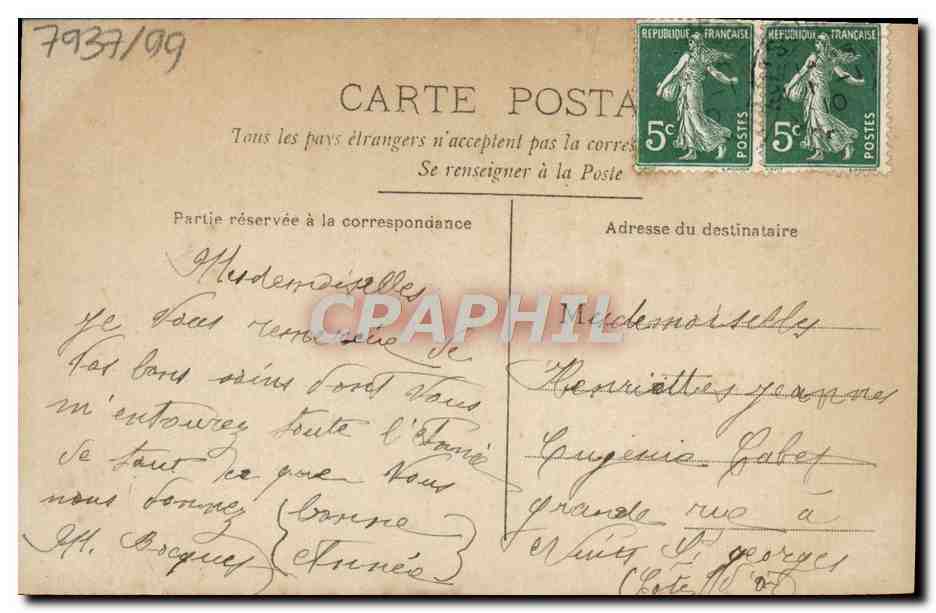 7937/99
RÉPUBLIQUE FRANÇAISE
5c POSTES
RÉPUBLIQUE FRANÇAISE
5c POSTES
10
CARTE POSTA
Tous les pays étrangers n'acceptent pas la corres
Se renseigner à la Poste
Partie réservée à la correspondance
Mademoiselles
je vous remercie de
vos bons soins dont vous
m'entourez toute l'Année
de tout ce que vous
nous donnez (bonne
M. Bocquet Année)
Adresse du destinataire
Mademoiselles
Henriettes jeannes
Eugenie Cabet
grande rue à
Nuits St georges
(Cote d'or)
CPAPHIL